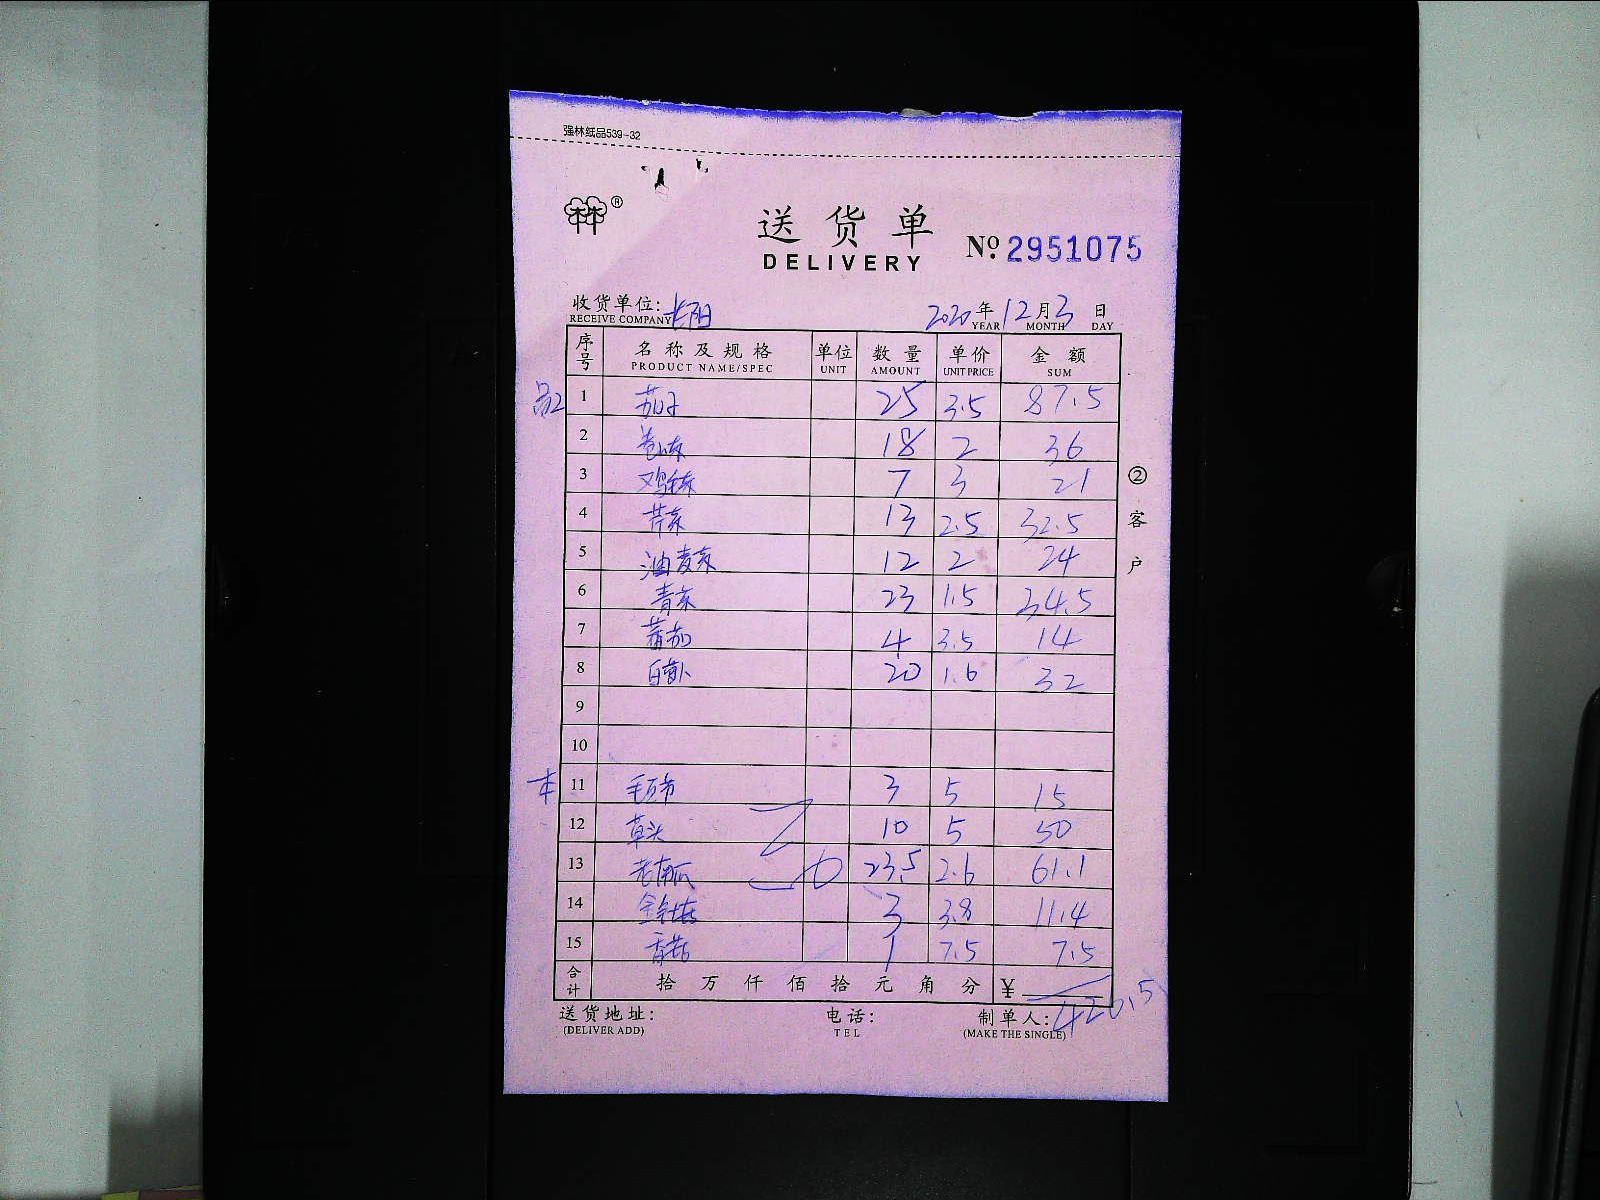 强林纸品539-32
林®
送货单
DELIVERY
№ 2951075
收货单位: 长阳 2020年12月3日
RECEIVE COMPANY YEAR MONTH DAY
序号 名称及规格 单位 数量 单价 金额
PRODUCT NAME/SPEC UNIT AMOUNT UNIT PRICE SUM
1 茄子 25 3.5 87.5
2 卷心菜 18 2 36
3 鸡毛菜 7 3 21
4 芹菜 13 2.5 32.5
5 油麦菜 12 2 24
6 青菜 23 1.5 34.5
7 蕃茄 4 3.5 14
8 白萝卜 20 1.6 32
9
10
11 毛豆节 3 5 15
12 草头 10 5 50
13 老南瓜 23.5 2.6 61.1
14 金针菇 3 3.8 11.4
15 香菇 1 7.5 7.5
合计 拾万仟佰拾元角分 ¥ 426.5
送货地址: 电话: 制单人:
(DELIVER ADD) TEL (MAKE THE SINGLE)
②客户